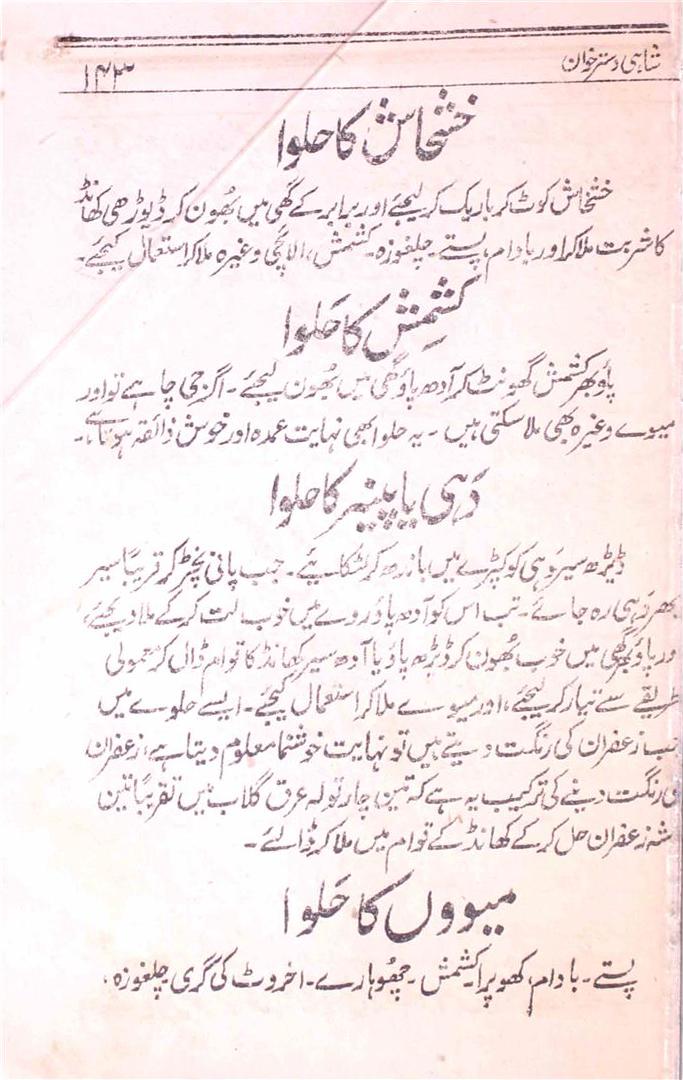 شاہی دسترخوان
۱۴۳
خشخاش کا حلوا
خشخاش کوٹ کر باریک کر لیجئے اور برابر کے گھی میں بُھون کر ڈیوڑھی کھانڈ
کا شربت ملا کر اور بادام، پستے۔ چلغوزہ۔ کشمش، الائچی وغیرہ ملا کر استعمال کیجئے۔
کشمِش کا حَلوا
پاؤ بھر کشمش گھونٹ کر آدھ پاؤ گھی میں بُھون لیجئے۔ اگر جی چاہے تو اور
میوے وغیرہ بھی ملا سکتی ہیں۔ یہ حلوا بھی نہایت عمدہ اور خوش ذائقہ ہوتا ہے۔
دَہی یا پنیر کا حلوا
ڈیڑھ سیر دہی کو کپڑے میں باندھ کر لٹکائیے۔ جب پانی نچڑ کر قریباً سیر
بھر دَہی رہ جائے۔ تب اس کو آدھ پاؤ روے میں خوب لت کر کے ملا دیجئے،
ور پاؤ بھر گھی میں خوب بُھون کر ڈیڑھ پاؤ یا آدھ سیر کھانڈ کا قوام ڈال کر معمولی
طریقے سے تیار کر لیجئے، اور میوے ملا کر استعمال کیجئے۔ ایسے حلوے میں
جب زعفران کی رنگت دیتے ہیں تو نہایت خوشنما معلوم دیتا ہے، زعفران
کی رنگت دینے کی ترکیب یہ ہے کہ تین چار تولہ عرق گلاب میں تقریباً تین
شہ زعفران حل کر کے کھانڈ کے قوام میں ملا کر ڈالئے۔
میووں کا حَلوا
پستے۔ بادام، کھوپرا۔ کشمش۔ چھُوہارے۔ اخروٹ کی گری۔ چلغوزہ،